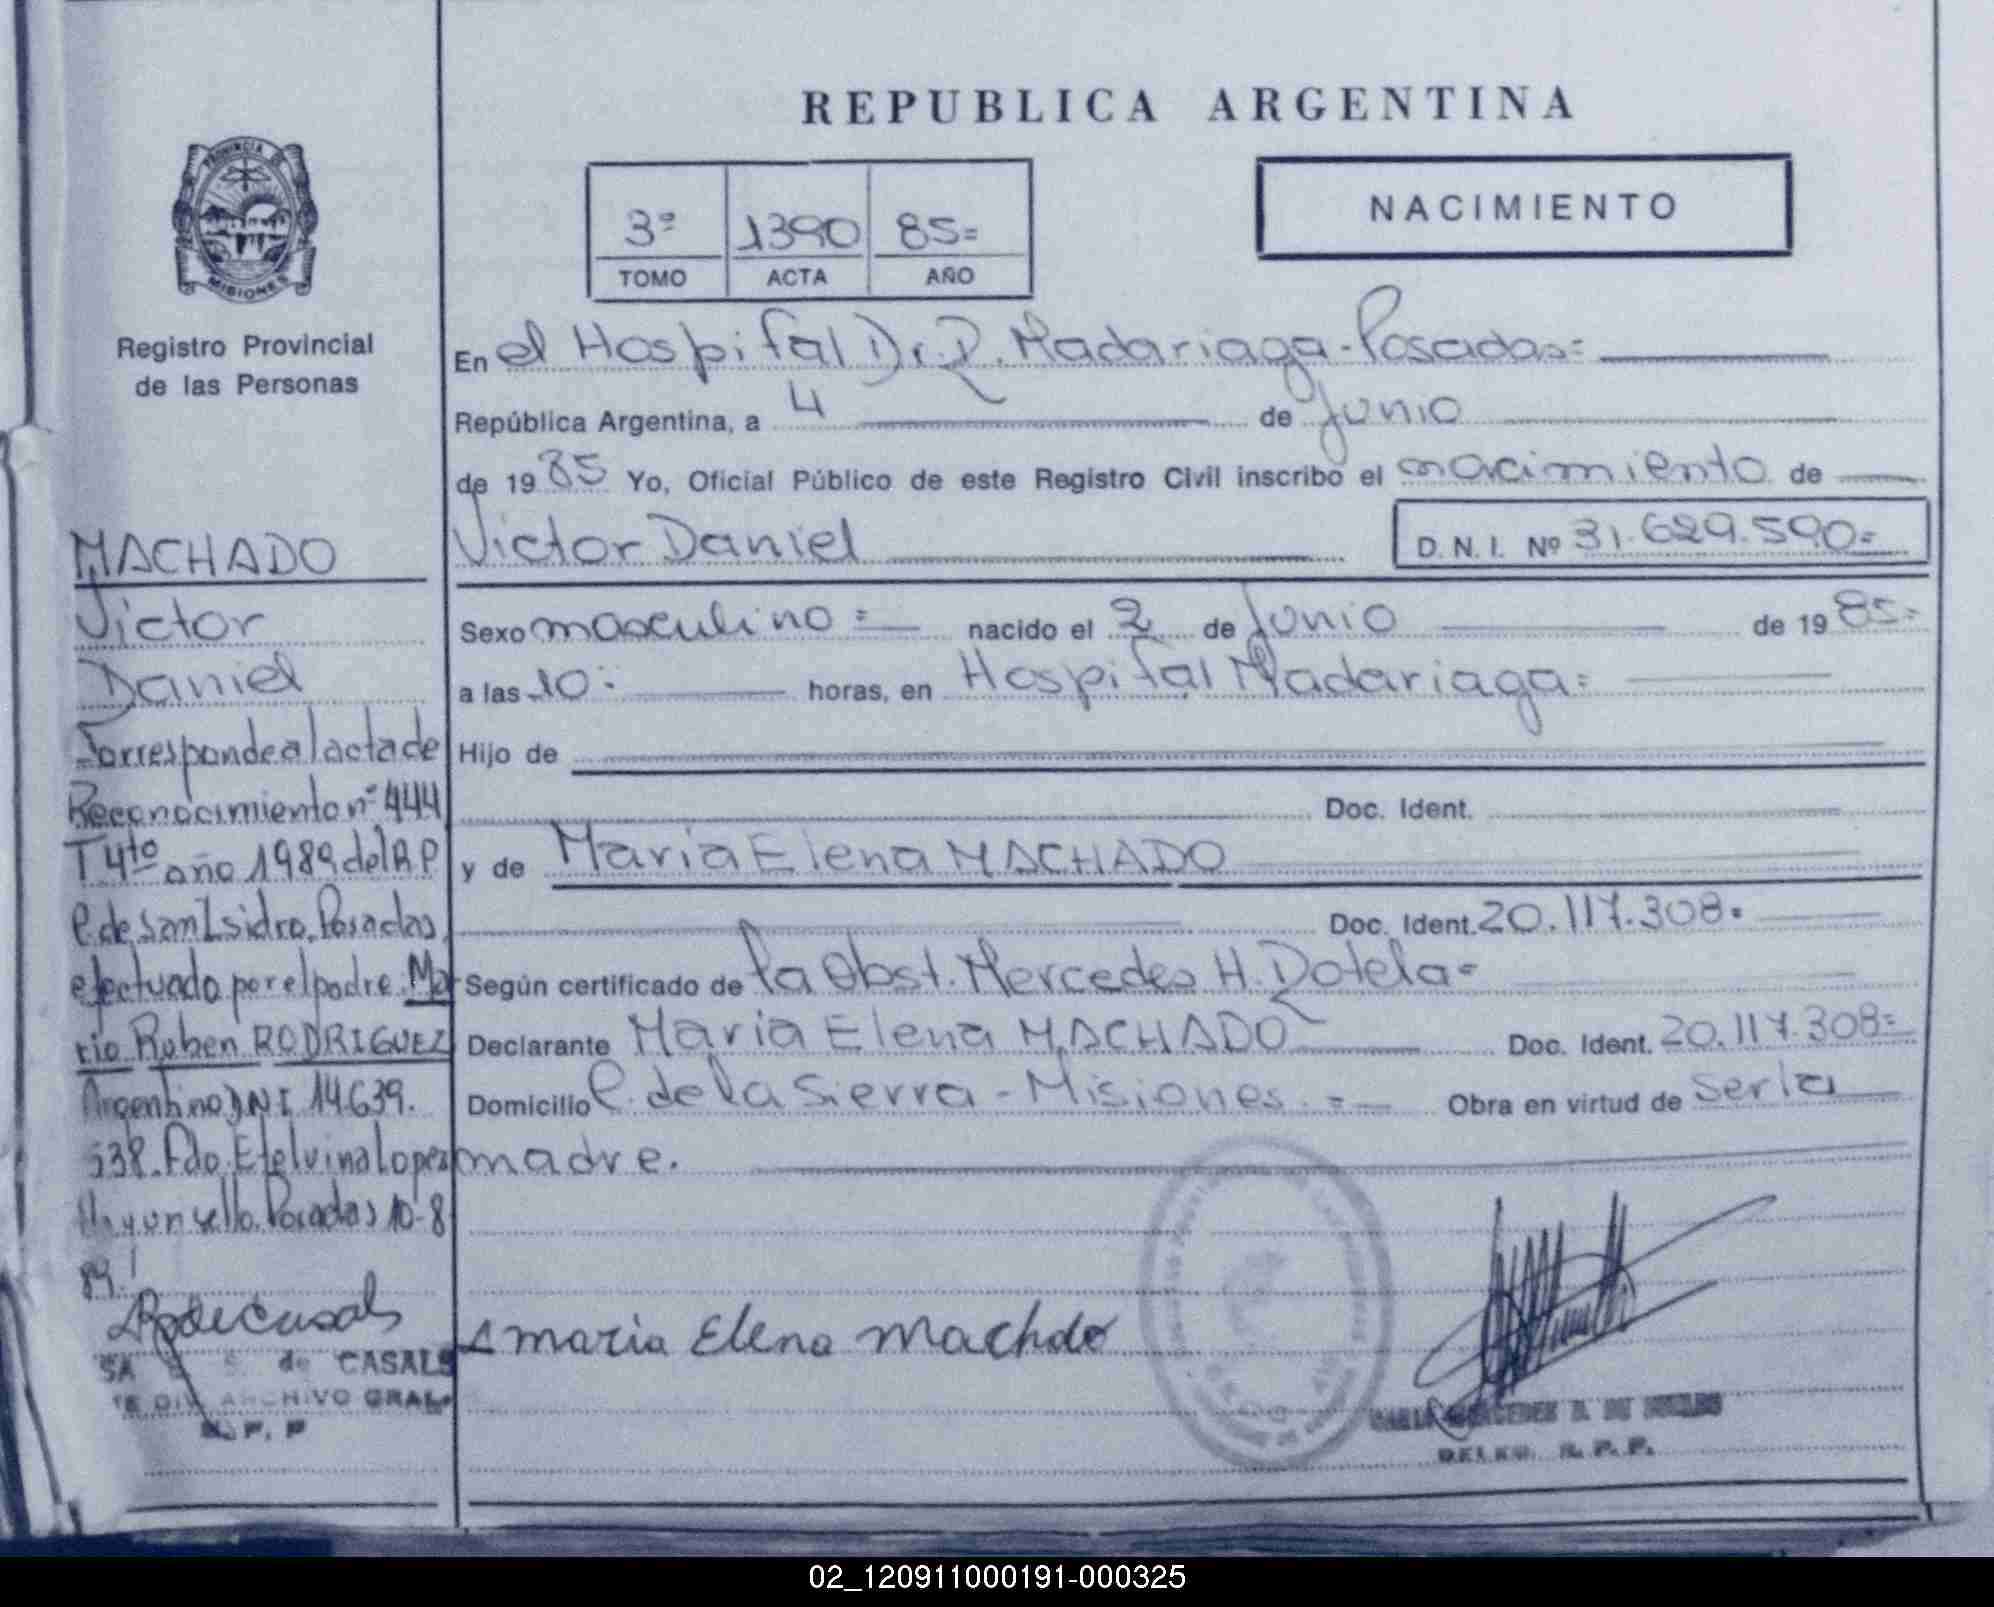 REPUBLICA ARGENTINA
PROVINCIA DE
MISIONES
Registro Provincial
de las Personas
3º 1390 85=
TOMO ACTA AÑO
NACIMIENTO
En el Hospital Dr. R. Madariaga-Posadas=
República Argentina, a 4 de Junio
de 1985 Yo, Oficial Público de este Registro Civil inscribo el nacimiento de
Victor Daniel D.N.I. Nº 31.629.590=
Sexo masculino= nacido el 2 de Junio de 1985=
a las 10: horas, en Hospital Madariaga=
Hijo de
Doc. Ident.
y de Maria Elena MACHADO
Doc. Ident. 20.117.308=
Según certificado de la Obst. Mercedes H. Dotela=
Declarante Maria Elena MACHADO Doc. Ident. 20.117.308=
Domicilio C. de la Sierra - Misiones.= Obra en virtud de ser la
madre.
Maria Elena Machdo
DE R. P. P.
MACHADO
Victor
Daniel
Corresponde al acta de
Reconocimiento nº 444
T 4to año 1989 del R.P
P. de San Isidro. Posadas
efectuado por el padre Ma
rio Ruben RODRIGUEZ
Argentino DNI 14.639.
538. Fdo. Etelvina Lopez
Hay un sello. Posadas 10-8
89.
de CASALS
DIV ARCHIVO GRAL.
R. P. P
02_120911000191-000325